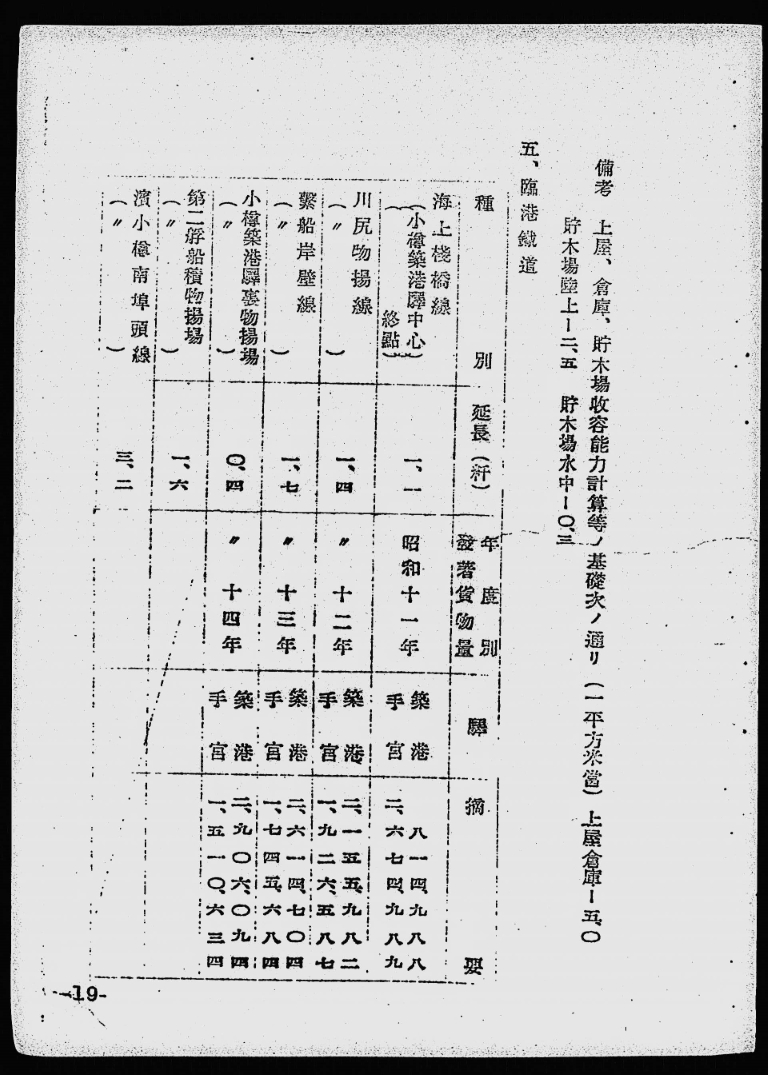 備考　上屋、倉庫、貯木場收容能力計算等ノ基礎次ノ通リ（一平方米當）上屋倉庫ー五、〇
貯木場陸上ー二、五　貯木場水中ー〇、三
五、臨港鐵道
種別　延長（粁）　年度別發著貨物量　驛　摘要
海上棧橋線（小樽築港驛中心終點）　一、一　昭和十一年　築港　八一四、九八八
手宮　二、六七四、九八九
川尻物揚線（〃）　一、四　〃十二年　築港　二、一五五、九八二
手宮　一、九二六、五八七
繫船岸壁線（〃）　一、七　〃十三年　築港　二、六一四、七〇四
手宮　一、七四五、六八四
小樽築港驛裏物揚場（〃）　〇、四　〃十四年　築港　二、九〇六、〇九四
手宮　一、五一〇、六三四
第二艀船積物揚場（〃）　一、六
濱小樽南埠頭線（〃）　三、二
-19-